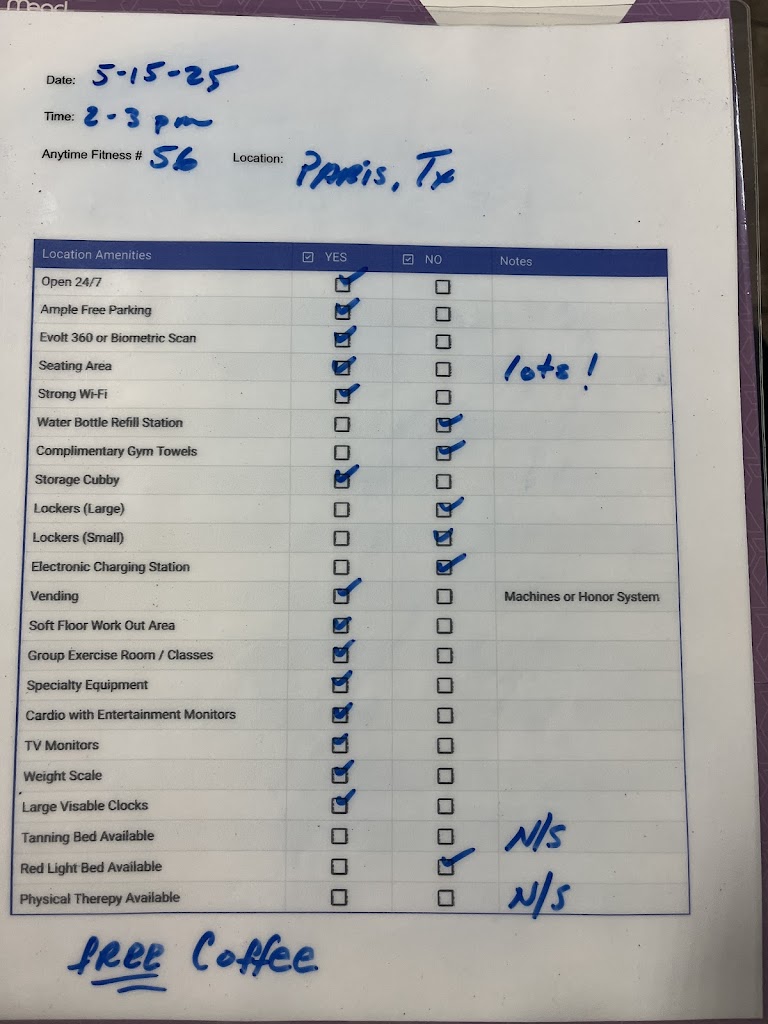 mead
Date: 5-15-25
Time: 2-3 pm
Anytime Fitness # 56 Location: PARIS, Tx
Location Amenities ☑ YES ☑ NO Notes
Open 24/7
Ample Free Parking
Evolt 360 or Biometric Scan
Seating Area lots!
Strong Wi-Fi
Water Bottle Refill Station
Complimentary Gym Towels
Storage Cubby
Lockers (Large)
Lockers (Small)
Electronic Charging Station
Vending Machines or Honor System
Soft Floor Work Out Area
Group Exercise Room / Classes
Specialty Equipment
Cardio with Entertainment Monitors
TV Monitors
Weight Scale
Large Visable Clocks
Tanning Bed Available N/S
Red Light Bed Available
Physical Therepy Available N/S
FREE Coffee